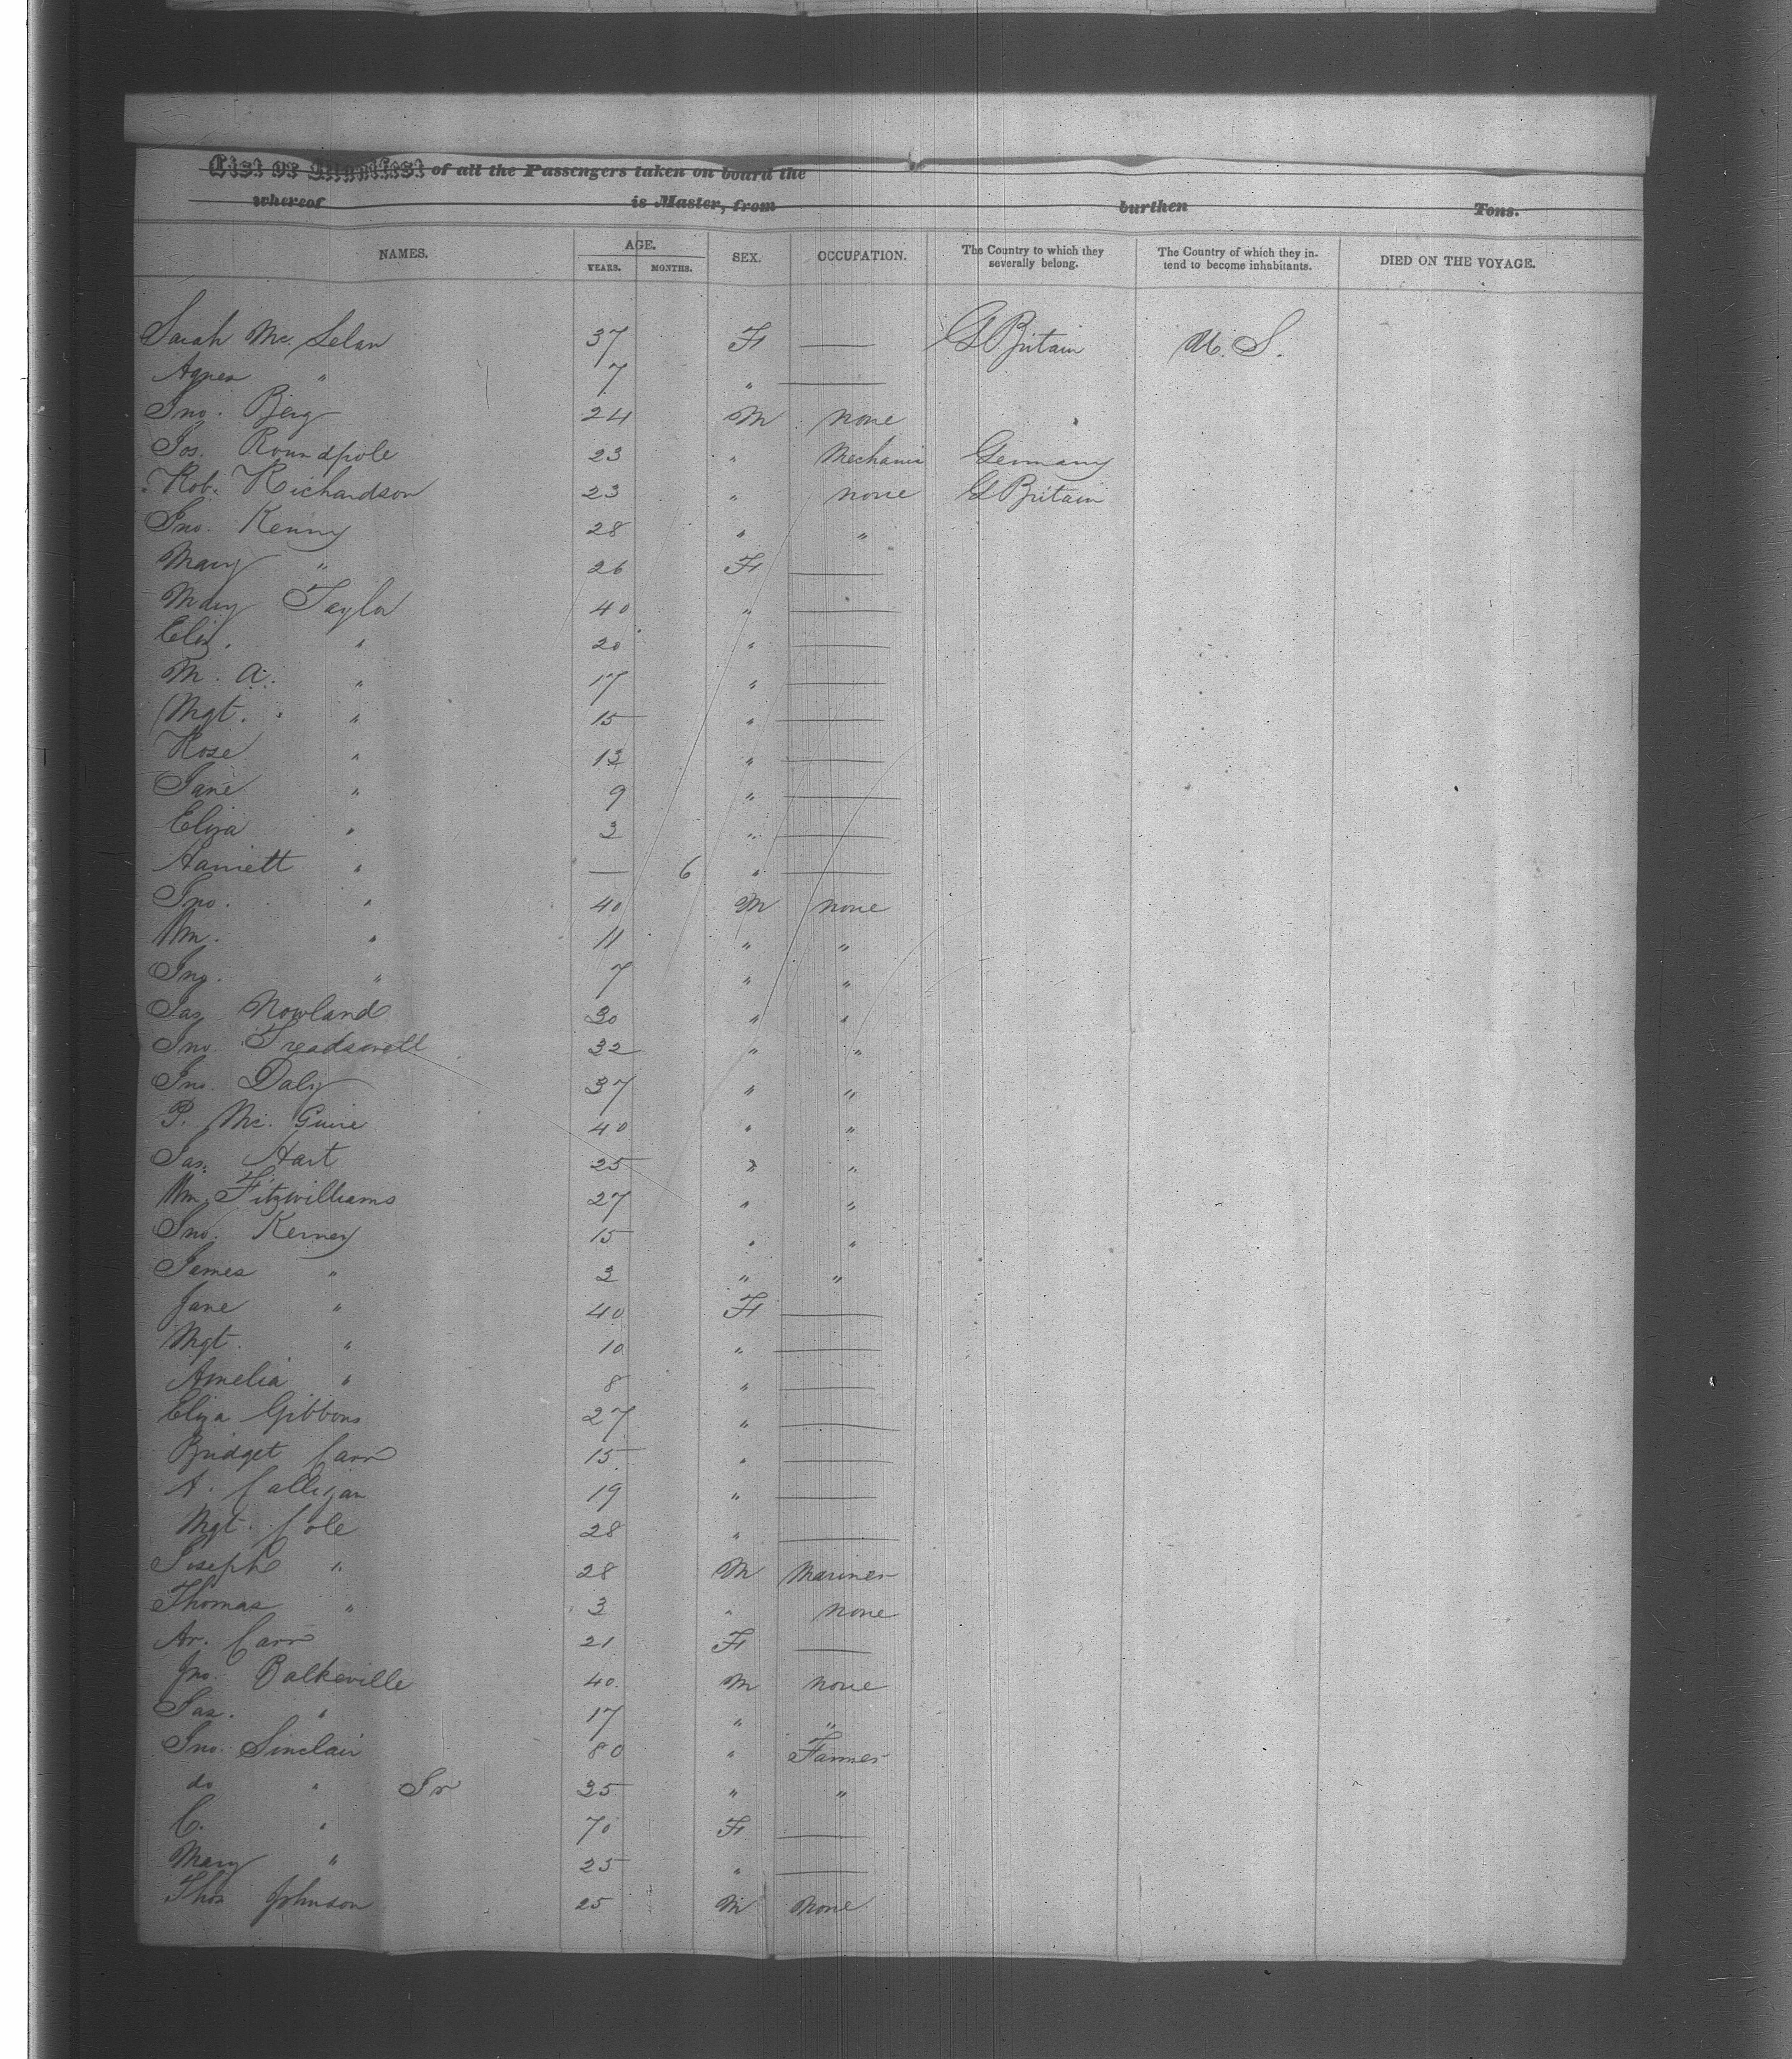 List or Manifest of all the Passengers taken on board the
whereof is Master, from burthen Tons.
NAMES. AGE. YEARS. MONTHS. SEX. OCCUPATION. The Country to which they severally belong. The Country of which they intend to become inhabitants. DIED ON THE VOYAGE.
Sarah Mc. Lelan 37 F — G Britain U. S.
Agnes " 7 " —
Jno. Berg 24 M none
Jos. Roundpole 23 " Mechanic Germany
Rob. Richardson 23 " none G Britain
Jno. Kenny 28 " "
Mary " 26 F —
Mary Taylor 40 " —
Eliz. " 20 " —
M. A. " 17 " —
Mgt. " 15 " —
Rose " 13 " —
Jane " 9 " —
Eliza " 3 " —
Harriett " — 6 " —
Jno. " 40 M none
Wm. " 11 " "
Jno. " 7 " "
Jas Nowland 30 " "
Jno. Treadwell 32 " "
Jno. Daly 37 " "
P. Mc. Guire 40 " "
Jas. Hart 25 " "
Wm. Fitzwilliams 27 " "
Jno. Kerney 15 " "
James " 3 " "
Jane " 40 F —
Mgt. " 10 " —
Amelia " 8 " —
Eliza Gibbons 27 " —
Bridget Carr 15 " —
A. Calligan 19 " —
Mgt. Cole 28 " —
Joseph " 28 M Mariner
Thomas " 3 " none
Ar. Carr 21 F —
Jno. Balkeville 40 M none
Jas. " 17 " "
Jno. Sinclair 80 " Farmer
do " Jr 35 " "
C. " 70 F —
Mary " 25 " —
Thos Johnson 25 M None